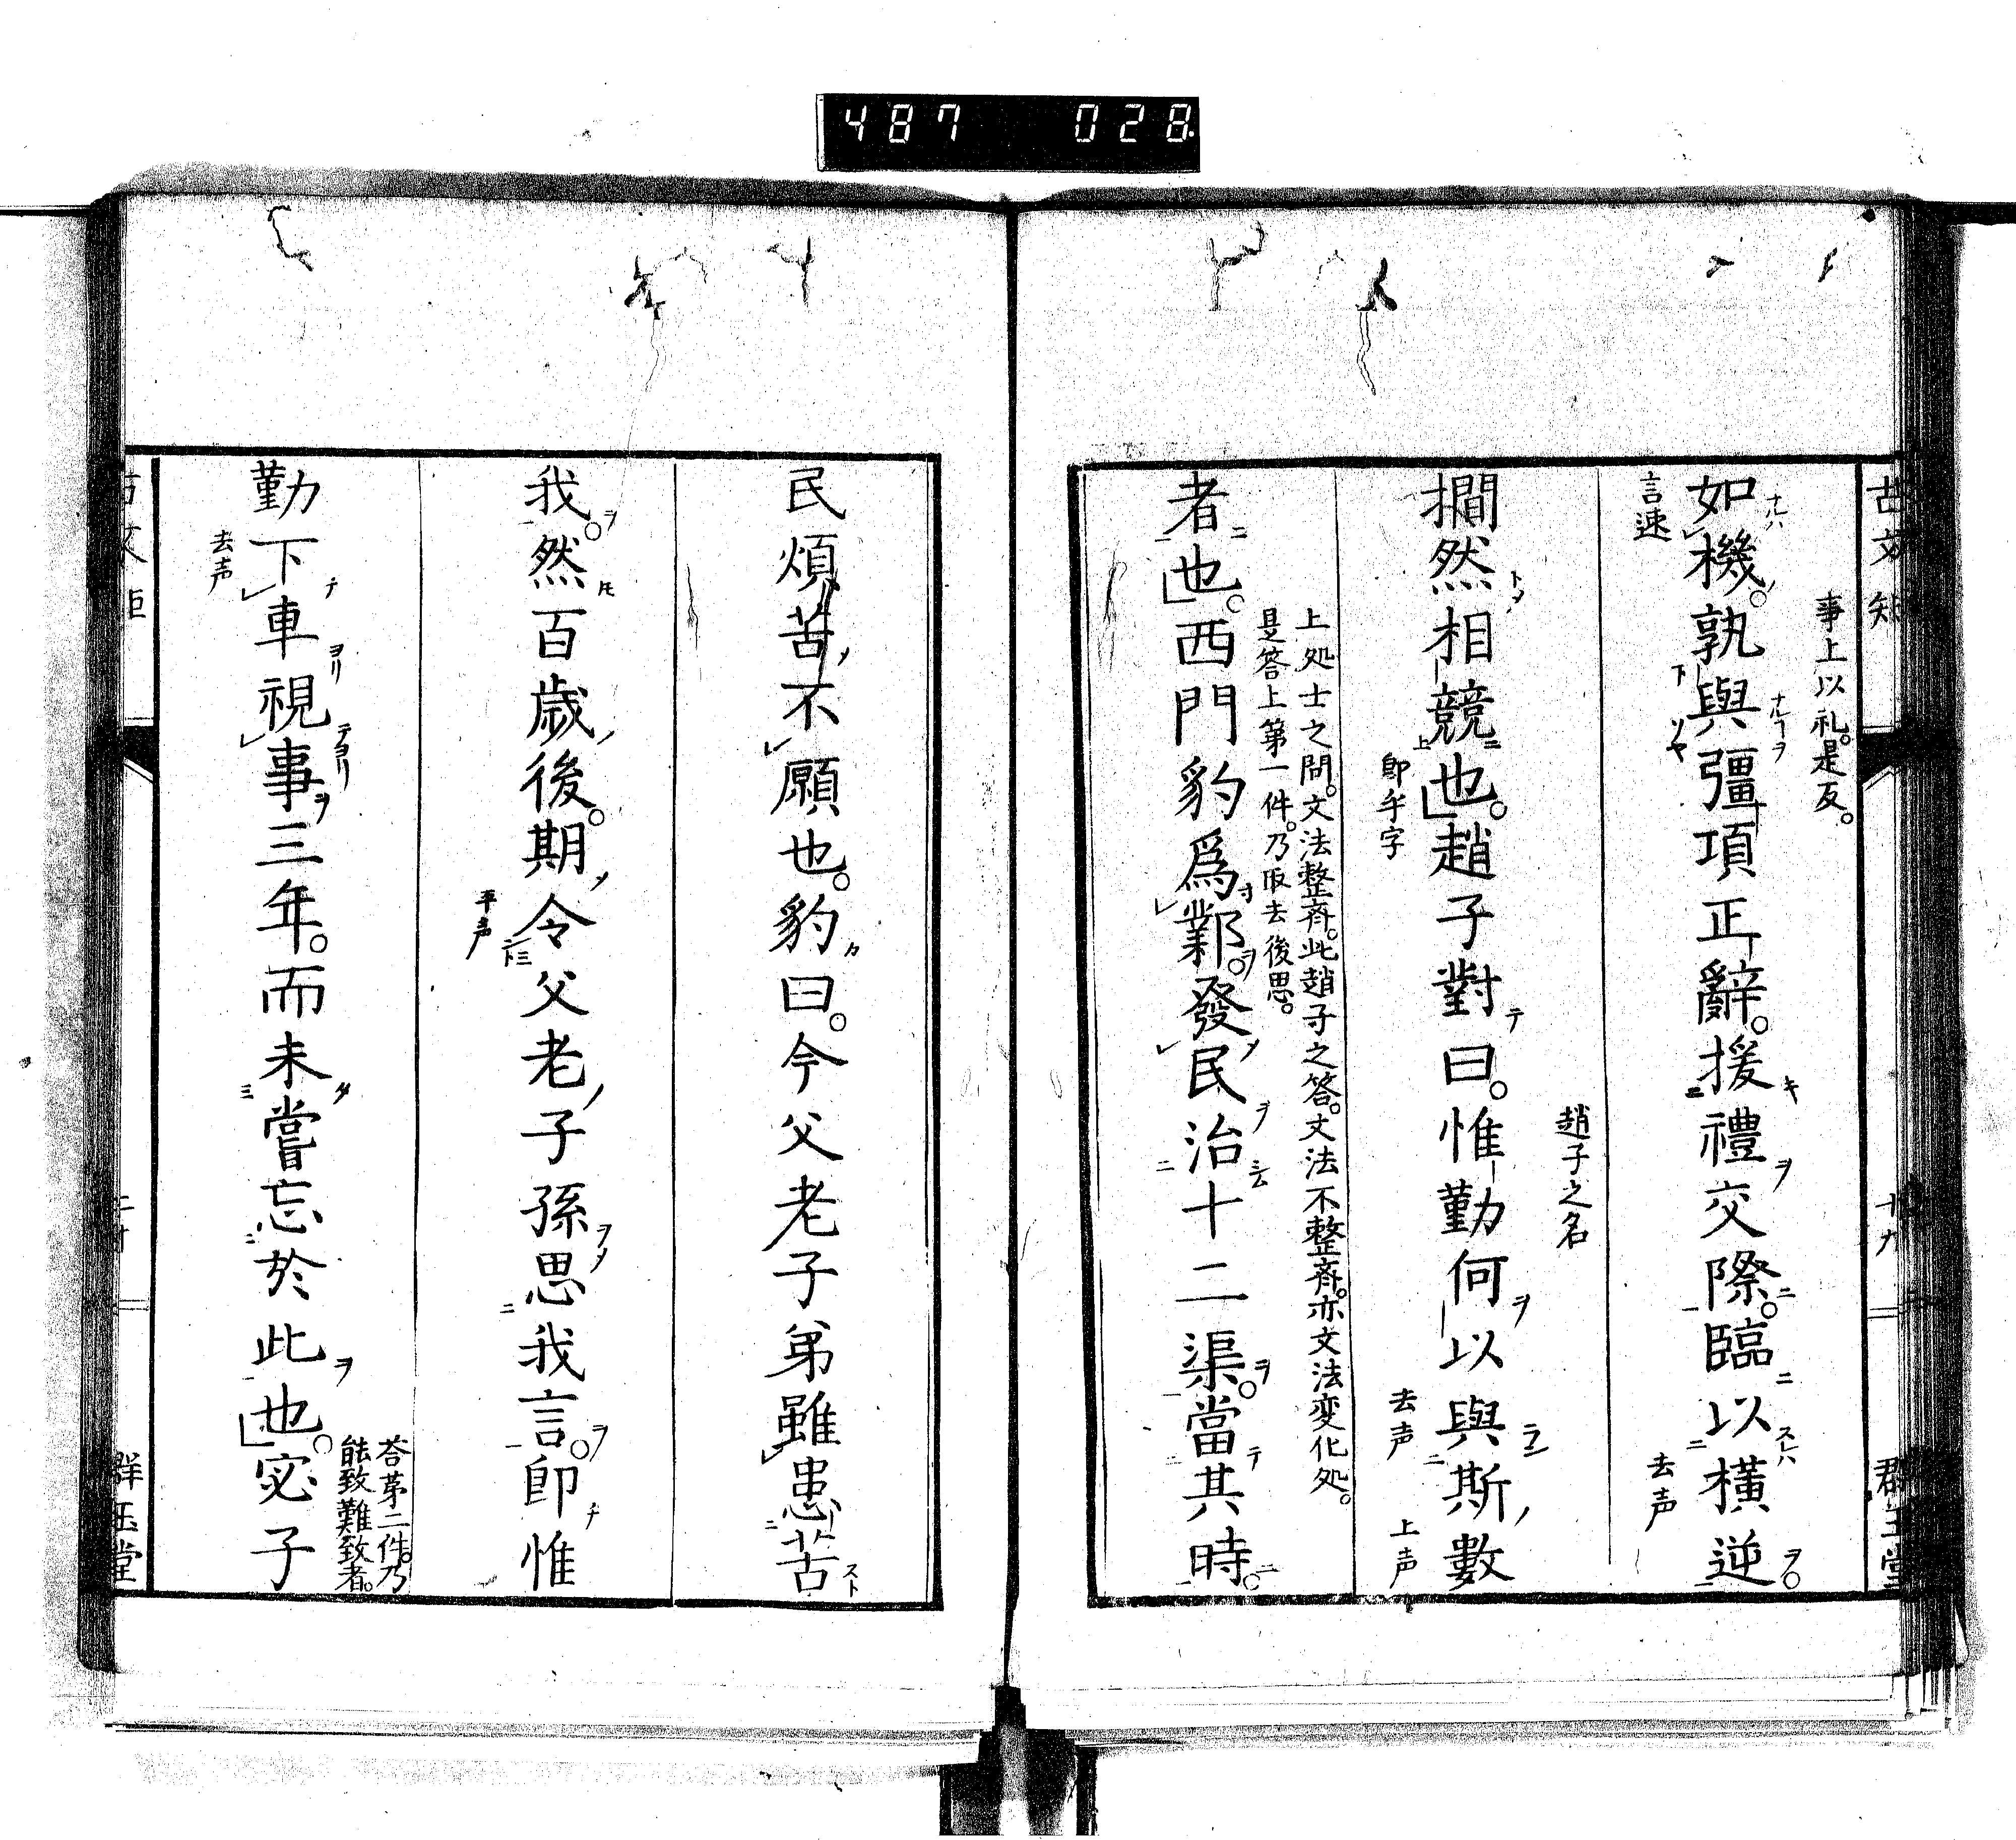 487 028
古文矩
十九
群玉堂
事上以礼。是反。
如機。孰與彊項正辭。援禮交際。臨以橫逆
言速
去声
趙子之名
撊然相競也。趙子對曰。惟勤何以與斯數
即乎字
去声
上声
上処士之問。文法整齊。此趙子之答。文法不整齊。亦文法変化処。
是答上第一件。乃取去後思。
者也。西門豹爲鄴。發民治十二渠。當其時。
民煩苦不願也。豹曰。今父老子弟雖患苦
我。然百歲後。期令父老子孫思我言。卽惟
平声
答第二件。乃
能致難致者。
勤下車視事三年。而未嘗忘於此也。宓子
去声
群玉堂